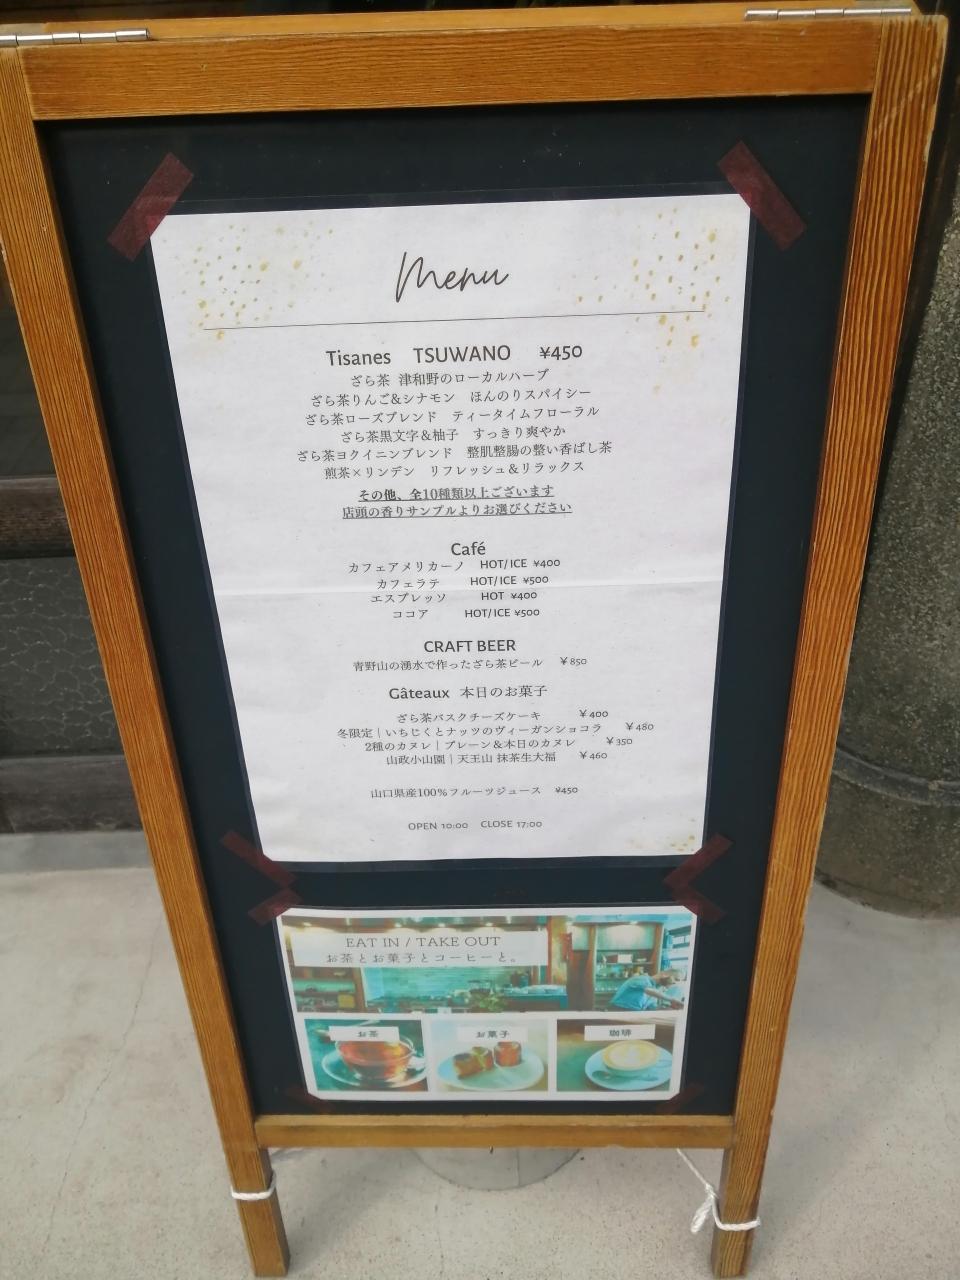 Menu
Tisanes TSUWANO ¥450
ざら茶 津和野のローカルハーブ
ざら茶りんご&シナモン ほんのりスパイシー
ざら茶ローズブレンド ティータイムフローラル
ざら茶黒文字&柚子 すっきり爽やか
ざら茶ヨクイニンブレンド 整肌整腸の整い香ばし茶
煎茶×リンデン リフレッシュ&リラックス
その他、全10種類以上ございます
店頭の香りサンプルよりお選びください
Café
カフェアメリカーノ HOT/ICE ¥400
カフェラテ HOT/ICE ¥500
エスプレッソ HOT ¥400
ココア HOT/ICE ¥500
CRAFT BEER
青野山の湧水で作ったざら茶ビール ¥850
Gâteaux 本日のお菓子
ざら茶バスクチーズケーキ ¥400
冬限定|いちじくとナッツのヴィーガンショコラ ¥480
2種のカヌレ|プレーン&本日のカヌレ ¥350
山政小山園|天王山 抹茶生大福 ¥460
山口県産100%フルーツジュース ¥450
OPEN 10:00 CLOSE 17:00
EAT IN / TAKE OUT
お茶とお菓子とコーヒーと。
お茶
お菓子
珈琲